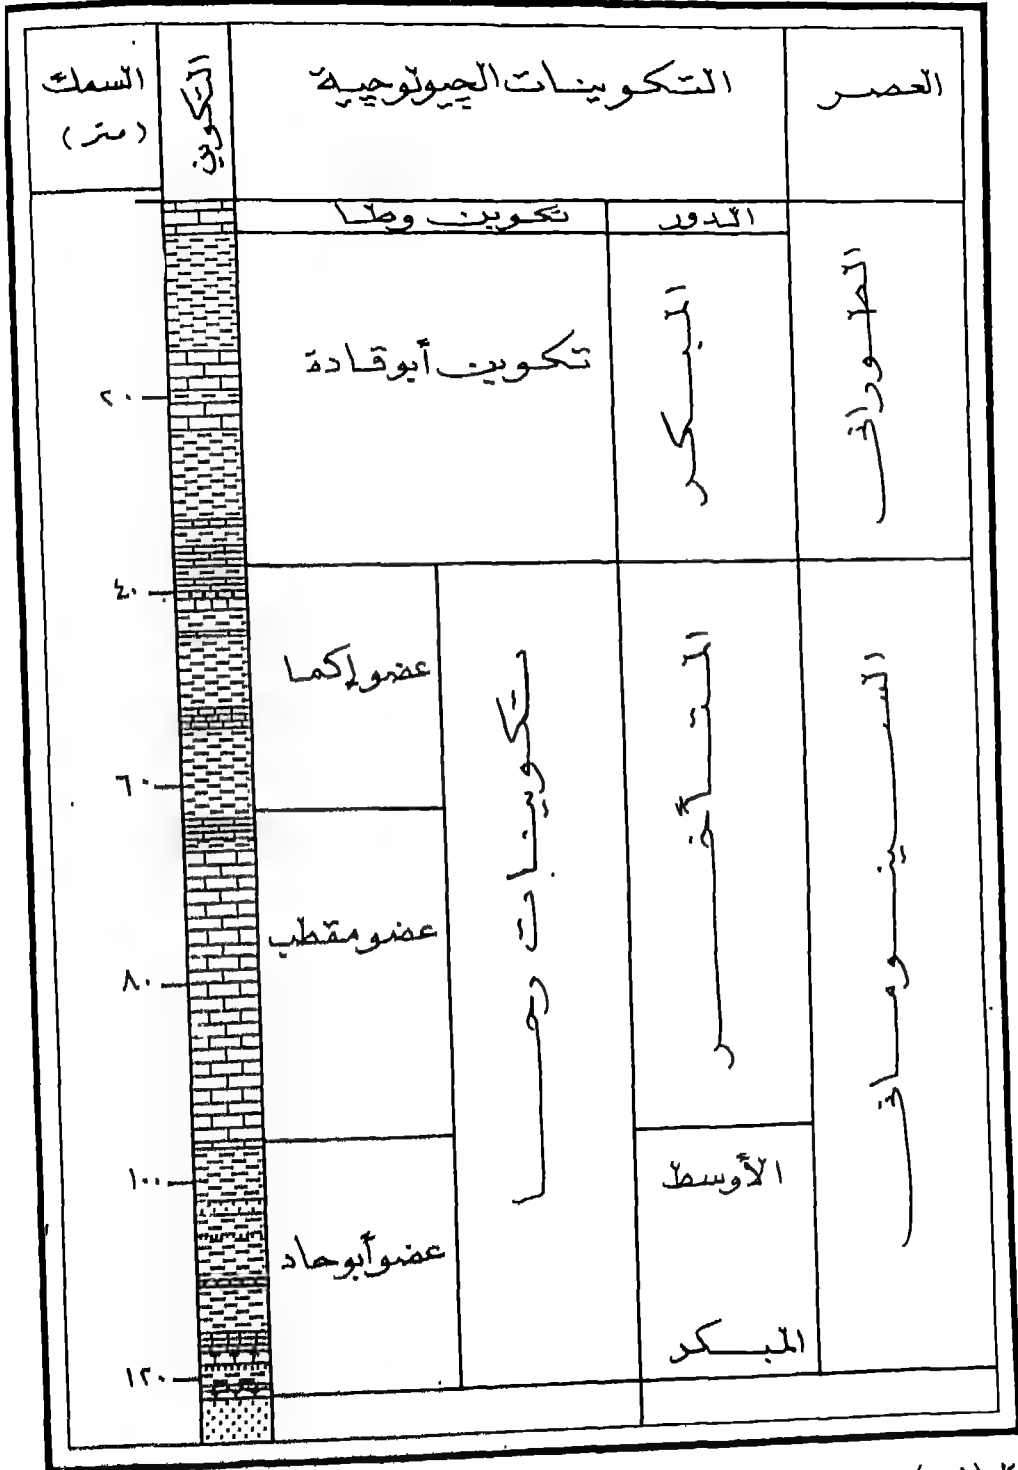 العصر
التكوينات الجيولوجية
التكوين
السمك
(متر)
الدور
تكوين وطا
الطوراني
المبكر
تكوين أبو قادة
٢٠
٤٠
السينوماني
المتأخر
تكوينات رحا
عضو إكما
٦٠
عضو مقطب
٨٠
الأوسط
١٠٠
عضو أبو حاد
المبكر
١٢٠